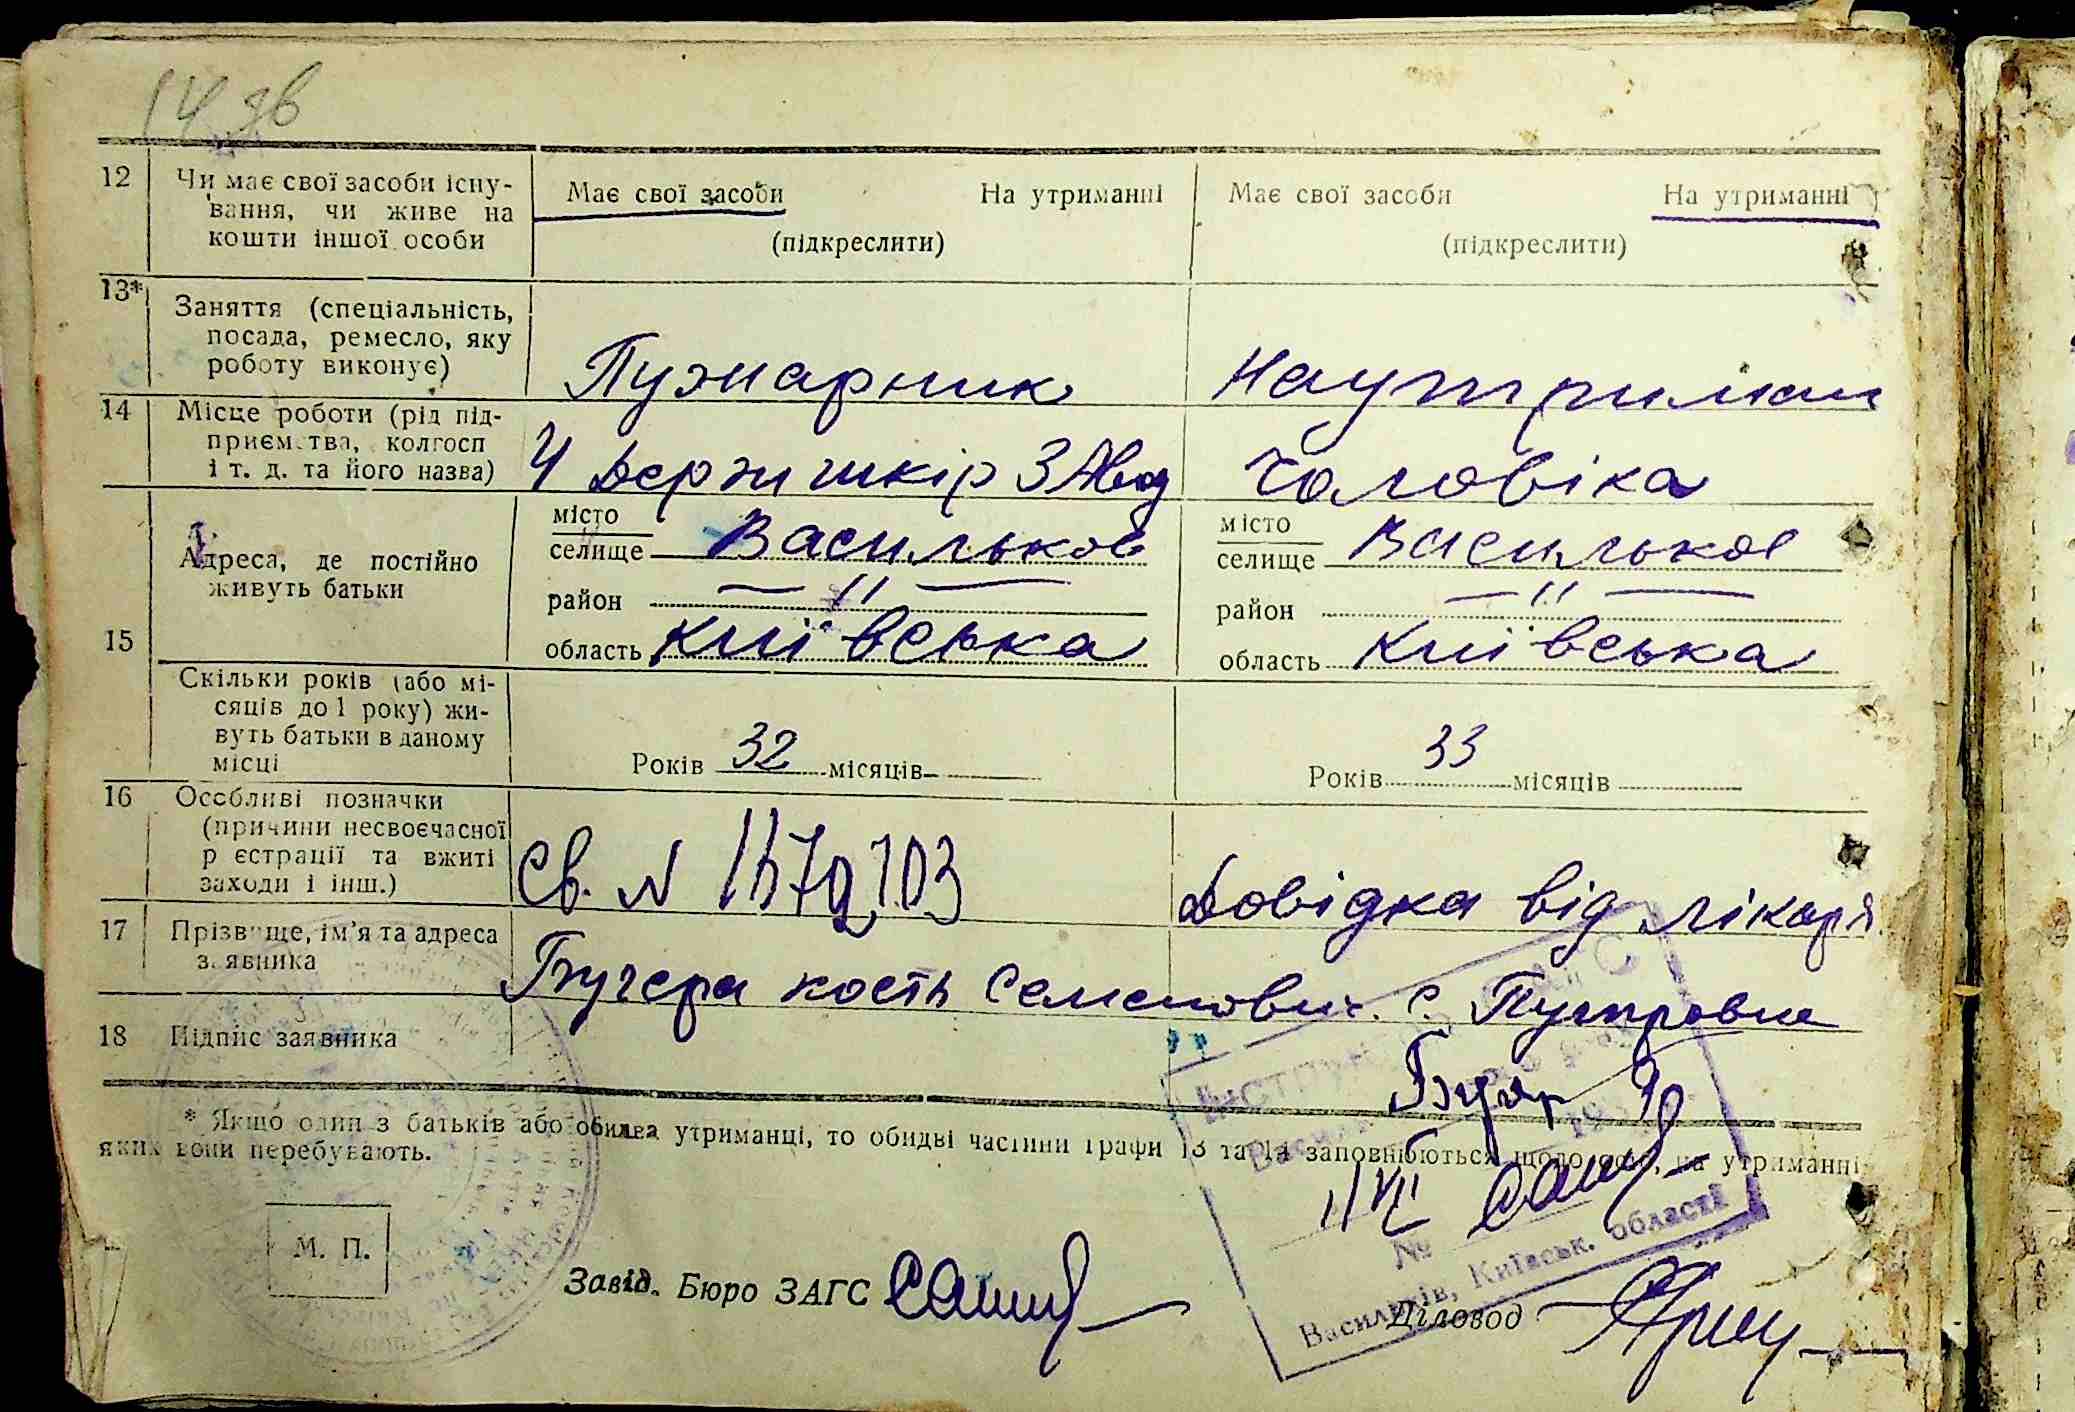 14 зв
12 Чи має свої засоби існу- Має свої засоби На утриманні Має свої засоби На утриманні
вання, чи живе на
кошти іншої особи (підкреслити) (підкреслити)
13* Заняття (спеціальність,
посада, ремесло, яку
роботу виконує) Пужарник На утримані
14 Місце роботи (рід під-
приємства, колгосп
і т. д. та його назва) Ч Держ шкір завод Чоловіка
місто місто
селище Васильков селище Васильков
Адреса, де постійно
живуть батьки
район — " — район — " —
15
область Київська область Київська
Скільки років (або мі-
сяців до 1 року) жи-
вуть батьки в даному
місці
Років 32 місяців Років 33 місяців
16 Особливі позначки
(причини несвоєчасної
р єстрації та вжиті
заходи і інш.) Св. N Довідка від лікаря
17 Прізвище, ім'я та адреса
заявника Бугера Кость Семенович. с. Путровка
18 Підпис заявника
* Якщо один з батьків або обидва утриманці, то обидві частини графи 13 та 14 заповнюються щодо осіб, на утриманні
яких вони перебувають.
№
Васильків, Київськ. області
М. П.
Завід. Бюро ЗАГС Діловод